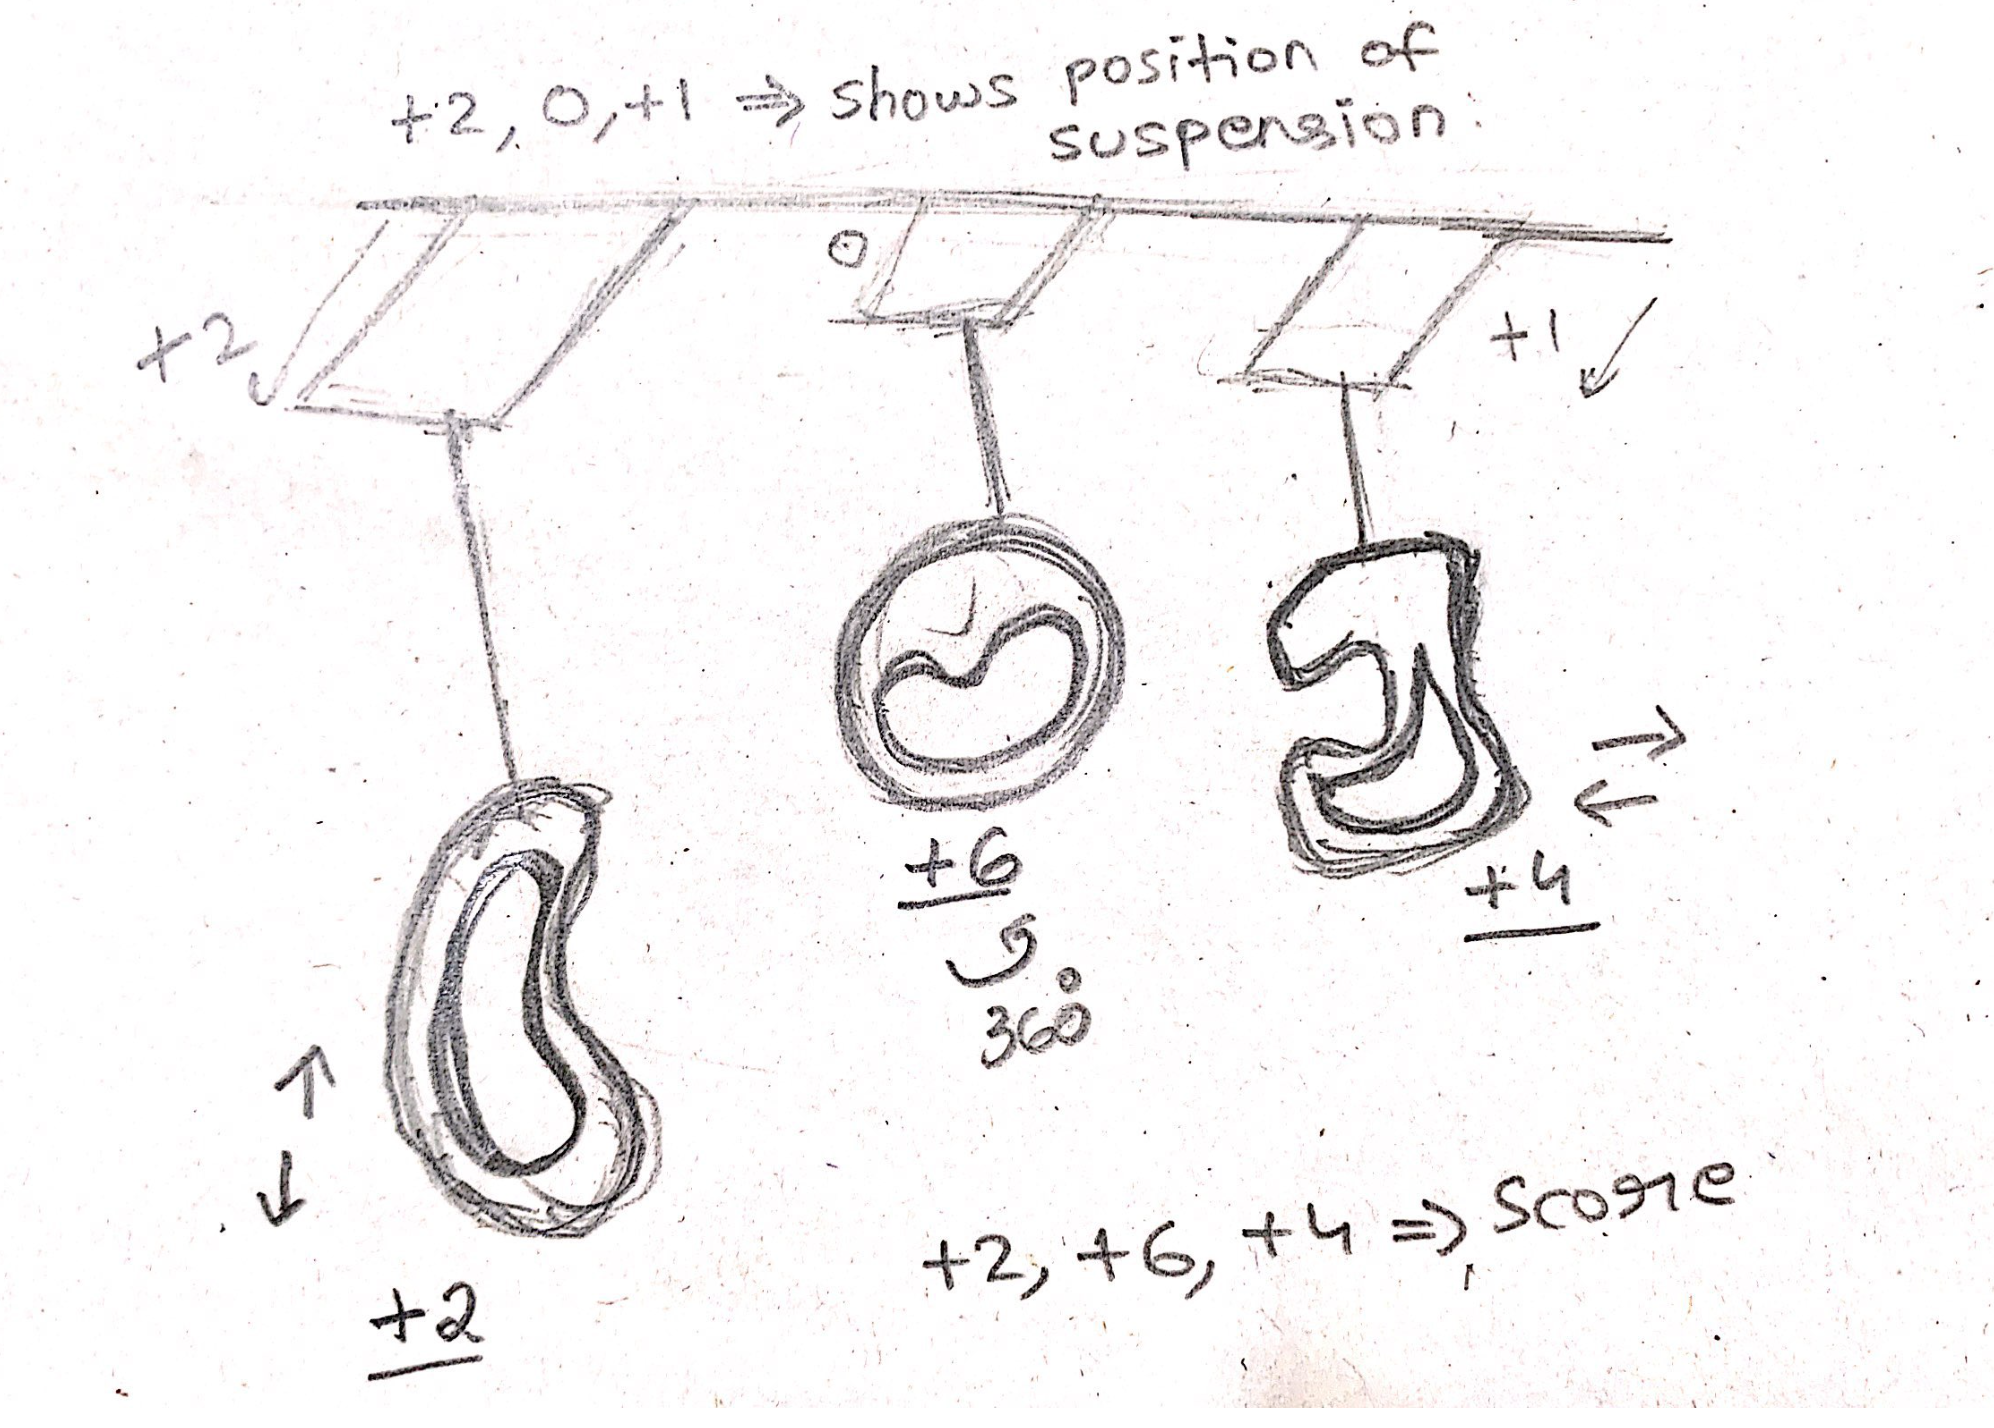 +2, 0, +1 ⇒ shows position of
suspension.
0
+2
+1
+6
+4
360°
+2, +6, +4 ⇒ Score
+2